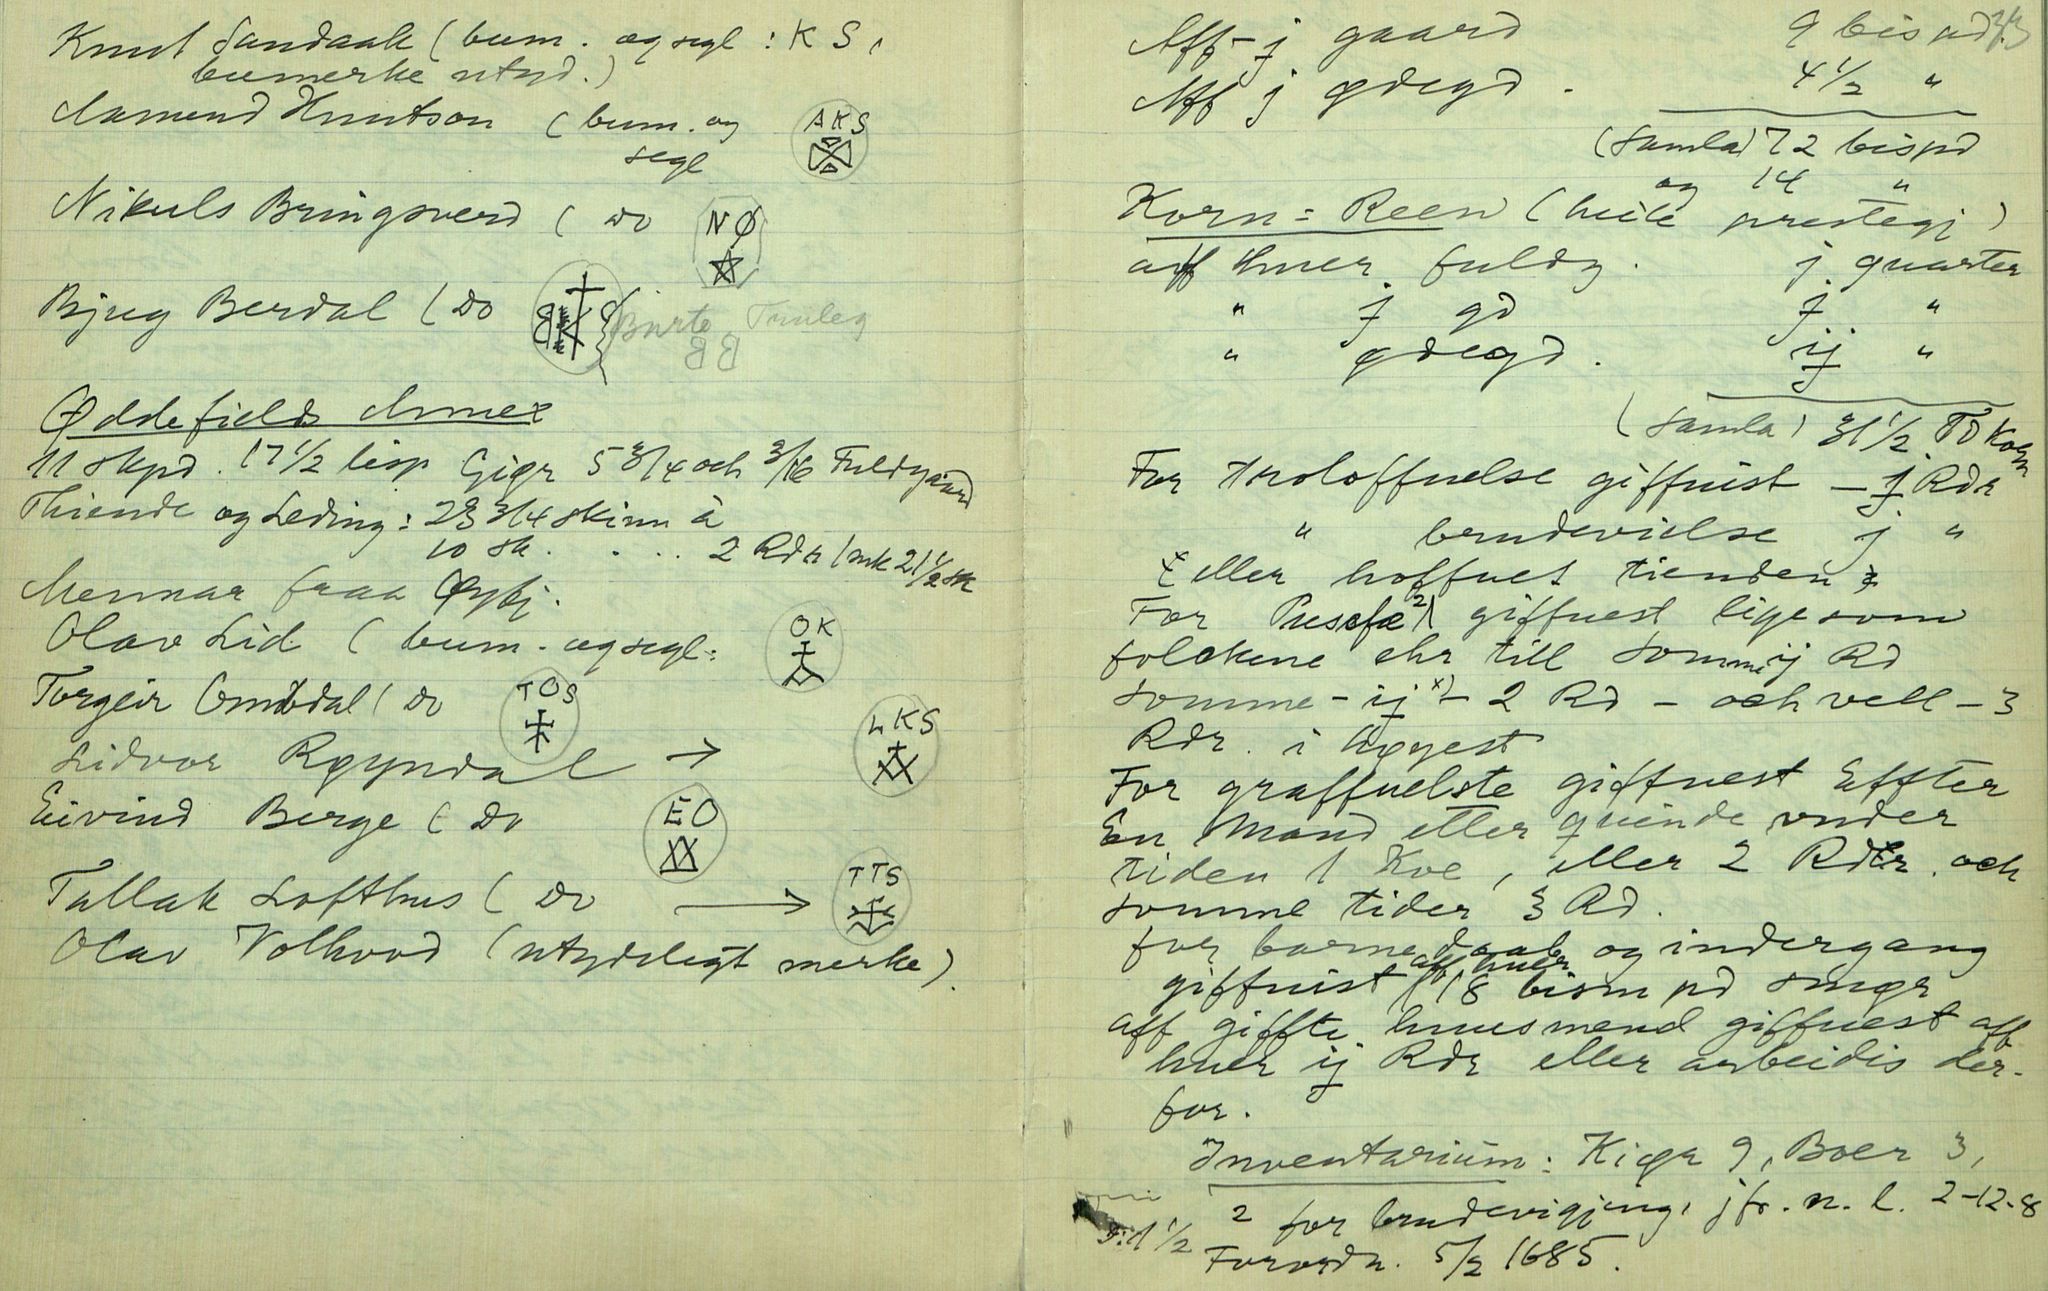 Knut Sandaak (bum. og segl: K S,
bumerke utyd.)
Aamund Knutson (bum. og
segl
AKS
Nikuls Bringsverd (Do
NØ
Bjug Berdal (Do
Burte Tunleg
BB
Øddefields Annex
11 skpd. 17 1/2 lisp Gigr 5 3/4 och 3/16 Fuldgaard
Thiende og Leding: 23 3/4 skinn à
10 sk. . . . 2 Rdr 1 mk 21 1/2 sk
Mennar fraa Øyfj.
Olav Lid (bum. og segl:
OK
Torgeir Omdal (Do
TOS
Lidvor Røyndal →
LKS
Eivind Berge (Do
EO
Tallak Lofthus (Do →
TTS
Olav Volhovd (utydelegt merke).
Aff j gaard 9 bispd.
Aff j ødegd. 4 1/2 "
(Samla) 72 bispd
og 14 "
Korn = Reen (heile prestegj)
aff huer fuldg. j quarter
" j gd j "
" ødegd. ij "
(Samla) 31 1/2 Td Korn
For troloffuelse giffuist – j Rdr
" brudevielse j "
x eller hoffuet tienden x
For Pusefæ 2) giffuest lige som
folckene ehr till somme ij Rd
somme – ij x) – 2 Rd – och vell – 3
Rdr. i høyest
For graffuelste giffuest Effter
En Mand eller quinde under
tiden 1 Koe, eller 2 Rdr. och
somme tider 3 Rd.
for barnedaab og indergang
giffuist aff huer 18 bism pd smør
aff giffte huusmend giffuest aff
huer ij Rdr eller arbeidis der-
for.
Inventarium: Kiør 9, Boer 3,
2 for brudevigjing, jfr. n. l. 2-12-8
ɔ: 1 1/2
Forordn. 5/2 1685.